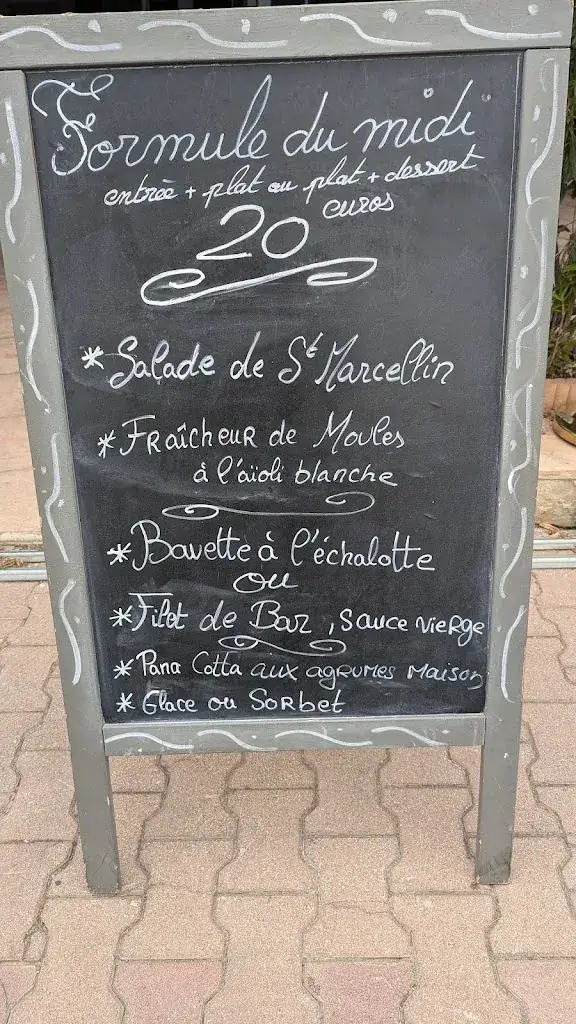 Formule du midi
entrée + plat ou plat + dessert
euros
20
* Salade de St Marcellin
* Fraîcheur de Moules
à l'aïoli blanche
* Bavette à l'échalotte
ou
* Filet de Bar, sauce vierge
* Pana Cotta aux agrumes Maison
* Glace ou Sorbet